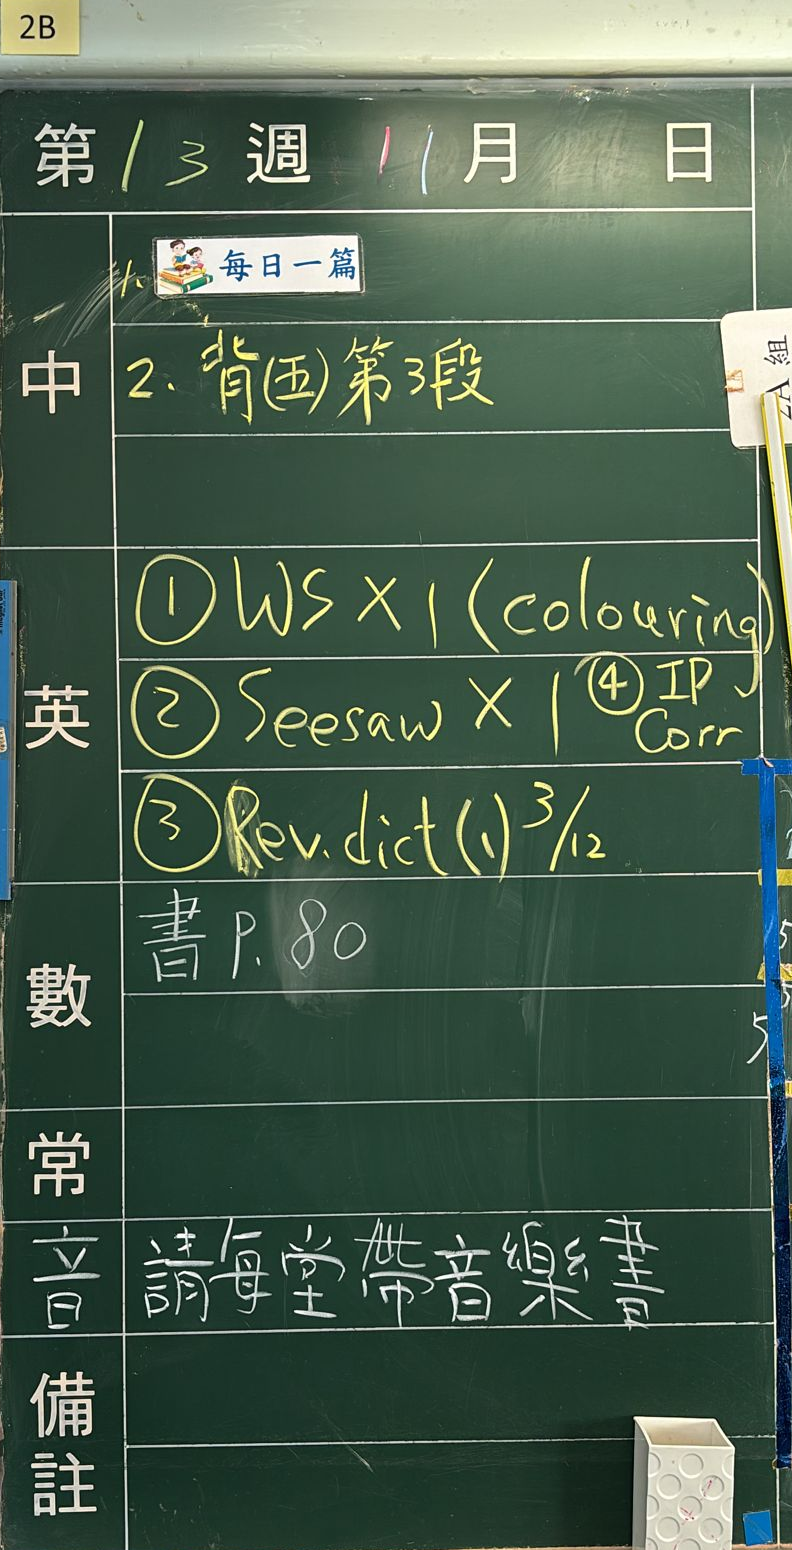 2B
第13週 11月 日
中
1. 每日一篇
2. 背(五)第3段
英
① WS X 1 (colouring)
② Seesaw X 1 ④ IP Corr
③ Rev. dict (1) 3/12
數
書 P. 80
常
音
請每堂帶音樂書
備註
組
2A
5
5
5